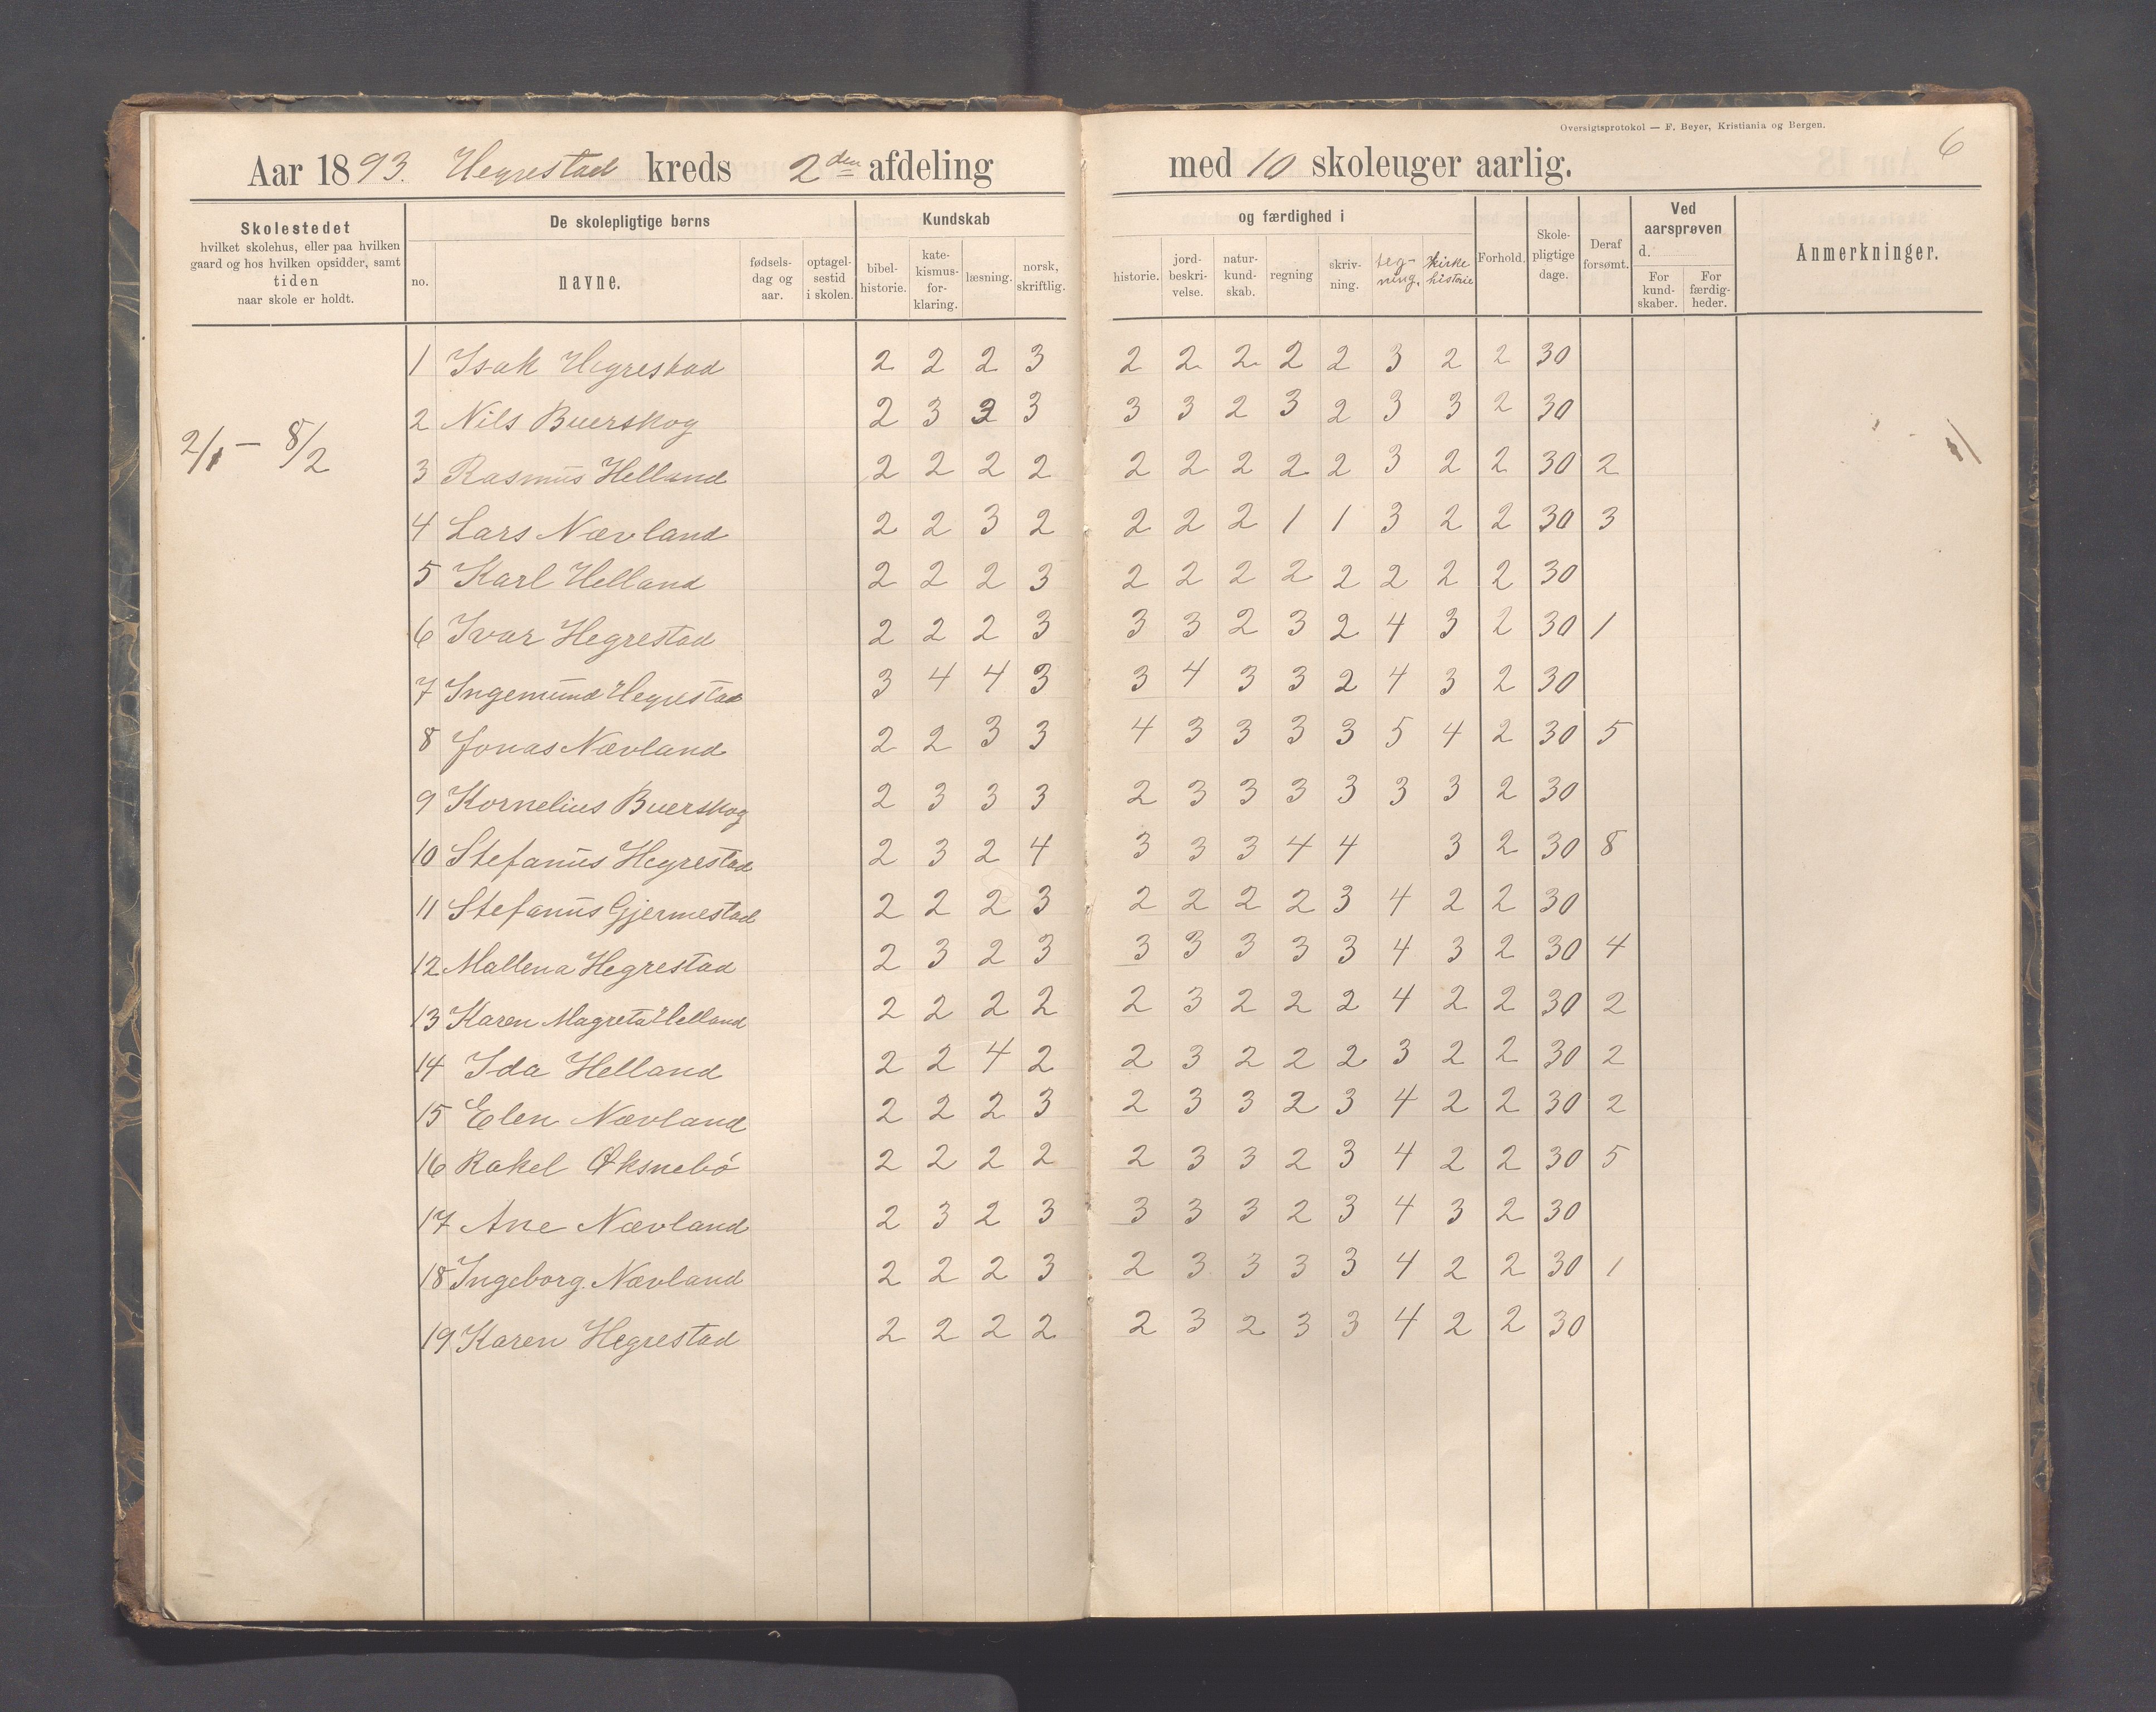 Oversigtsprotokol — F. Beyer, Kristiania og Bergen.
6
Aar 1893. Hegrestad kreds 2den afdeling med 10 skoleuger aarlig.
Skolestedet
hvilket skolehus, eller paa hvilken
gaard og hos hvilken opsidder, samt
tiden
naar skole er holdt.
De skolepligtige børns
no. navne. fødsels-dag og aar. optagel-sestid i skolen.
Kundskab og færdighed i
bibel-historie. kate-kismus-for-klaring. læsning. norsk, skriftlig. historie. jord-beskri-velse. natur-kund-skab. regning skriv-ning. teg-ning. Kirke historie
Forhold. Skole-pligtige dage. Deraf forsømt.
Ved aarsprøven
d.
For kund-skaber. For færdig-heder.
Anmerkninger.
1 Isak Hegrestad 2 2 2 3 2 2 2 2 2 3 2 2 30
2 Nils Buerskog 2 3 2 3 3 3 2 3 2 3 3 2 30
2/1 – 8/2
3 Rasmus Helland 2 2 2 2 2 2 2 2 2 3 2 2 30 2
4 Lars Nævland 2 2 3 2 2 2 2 1 1 3 2 2 30 3
5 Karl Helland 2 2 2 3 2 2 2 2 2 2 2 2 30
6 Ivar Hegrestad 2 2 2 3 3 3 2 3 2 4 3 2 30 1
7 Ingemund Hegrestad 3 4 4 3 3 4 3 3 2 4 3 2 30
8 Jonas Nævland 2 2 3 3 4 3 3 3 3 5 4 2 30 5
9 Kornelius Buerskog 2 3 3 3 2 3 3 3 3 3 3 2 30
10 Stefanus Hegrestad 2 3 2 4 3 3 3 4 4 3 2 30 8
11 Stefanus Gjermestad 2 2 2 3 2 2 2 2 3 4 2 2 30
12 Mallena Hegrestad 2 3 2 3 3 3 3 3 3 4 3 2 30 4
13 Karen Magreta Helland 2 2 2 2 2 3 2 2 2 4 2 2 30 2
14 Ida Helland 2 2 4 2 2 3 2 2 2 3 2 2 30 2
15 Elen Nævland 2 2 2 3 2 3 3 2 3 4 2 2 30 2
16 Rakel Øksnebö 2 2 2 2 2 3 3 2 3 4 2 2 30 5
17 Ane Nævland 2 3 2 3 3 3 3 2 3 4 3 2 30
18 Ingeborg Nævland 2 2 2 3 2 3 3 3 3 4 2 2 30 1
19 Karen Hegrestad 2 2 2 2 2 3 2 3 3 4 2 2 30